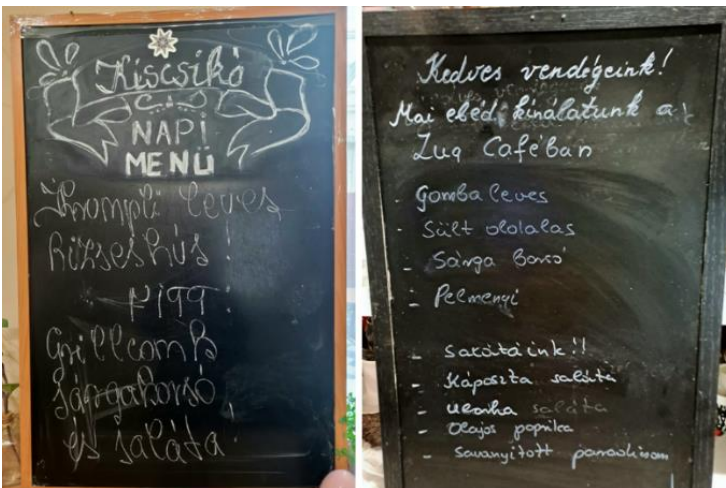 Kiscsikó
NAPI
MENÜ
Krumpli leves
Rizseshús!
Grillcomb
sárgaborsó,
és saláta!
Kedves vendégeink!
Mai ebéd kínálatunk a
Zug Caféban
- Gombaleves
- Sült oldalas
- Sárga borsó
- Pelmenyi
- salátáink!!
- Káposzta saláta
- uborka saláta
- Olajos paprika
- savanyitott paradicsom